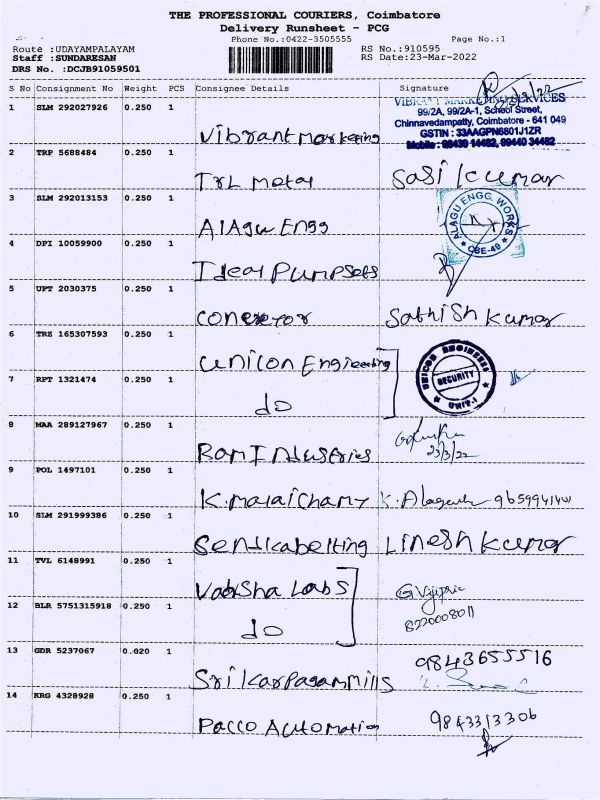 THE PROFESSIONAL COURIERS, Coimbatore
Delivery Runsheet - PCG
Phone No.:0422-3505555 Page No.:1
Route :UDAYAMPALAYAM RS No.:910595
Staff :SUNDARESAN RS Date:23-Mar-2022
DRS No. :DCJB91059501
S No Consignment No Weight PCS Consignee Details Signature
1 SLM 292027926 0.250 1 Vibrant Marketing
VIBRANT MARKETING SERVICES
99/2A, 99/2A-1, School Street,
Chinnavedampatty, Coimbatore - 641 049
GSTIN : 33AAGPN6801J1ZR
Mobile : 98430 14482, 99440 34482
2 TRP 5688484 0.250 1 TRL Metal Sasi kumar
3 SLM 292013153 0.250 1 Alagu Engg
ALAGU ENGG. WORKS
CBE-49
4 DPI 10059900 0.250 1 Ideal Pumpsets
5 UPT 2030375 0.250 1 Conveyor Sathish Kumar
6 TRZ 165307593 0.250 1 Unicon Engineering
UNICON ENGINEERS
SECURITY
UNIT-I
7 RPT 1321474 0.250 1 do
8 MAA 289127967 0.250 1 Ram Industries
23/3/22
9 POL 1497101 0.250 1 K. Malaichamy K. Alagesh
10 SLM 291999386 0.250 1 Senskabelting Lineshkumar
11 TVL 6148991 0.250 1 Vabisha Labs G Vijipric
12 BLR 5751315918 0.250 1 do 8220008011
13 GDR 5237067 0.020 1 Sri karpagammills 9843655516
14 KRG 4328928 0.250 1 Pacco Automation 9843313306